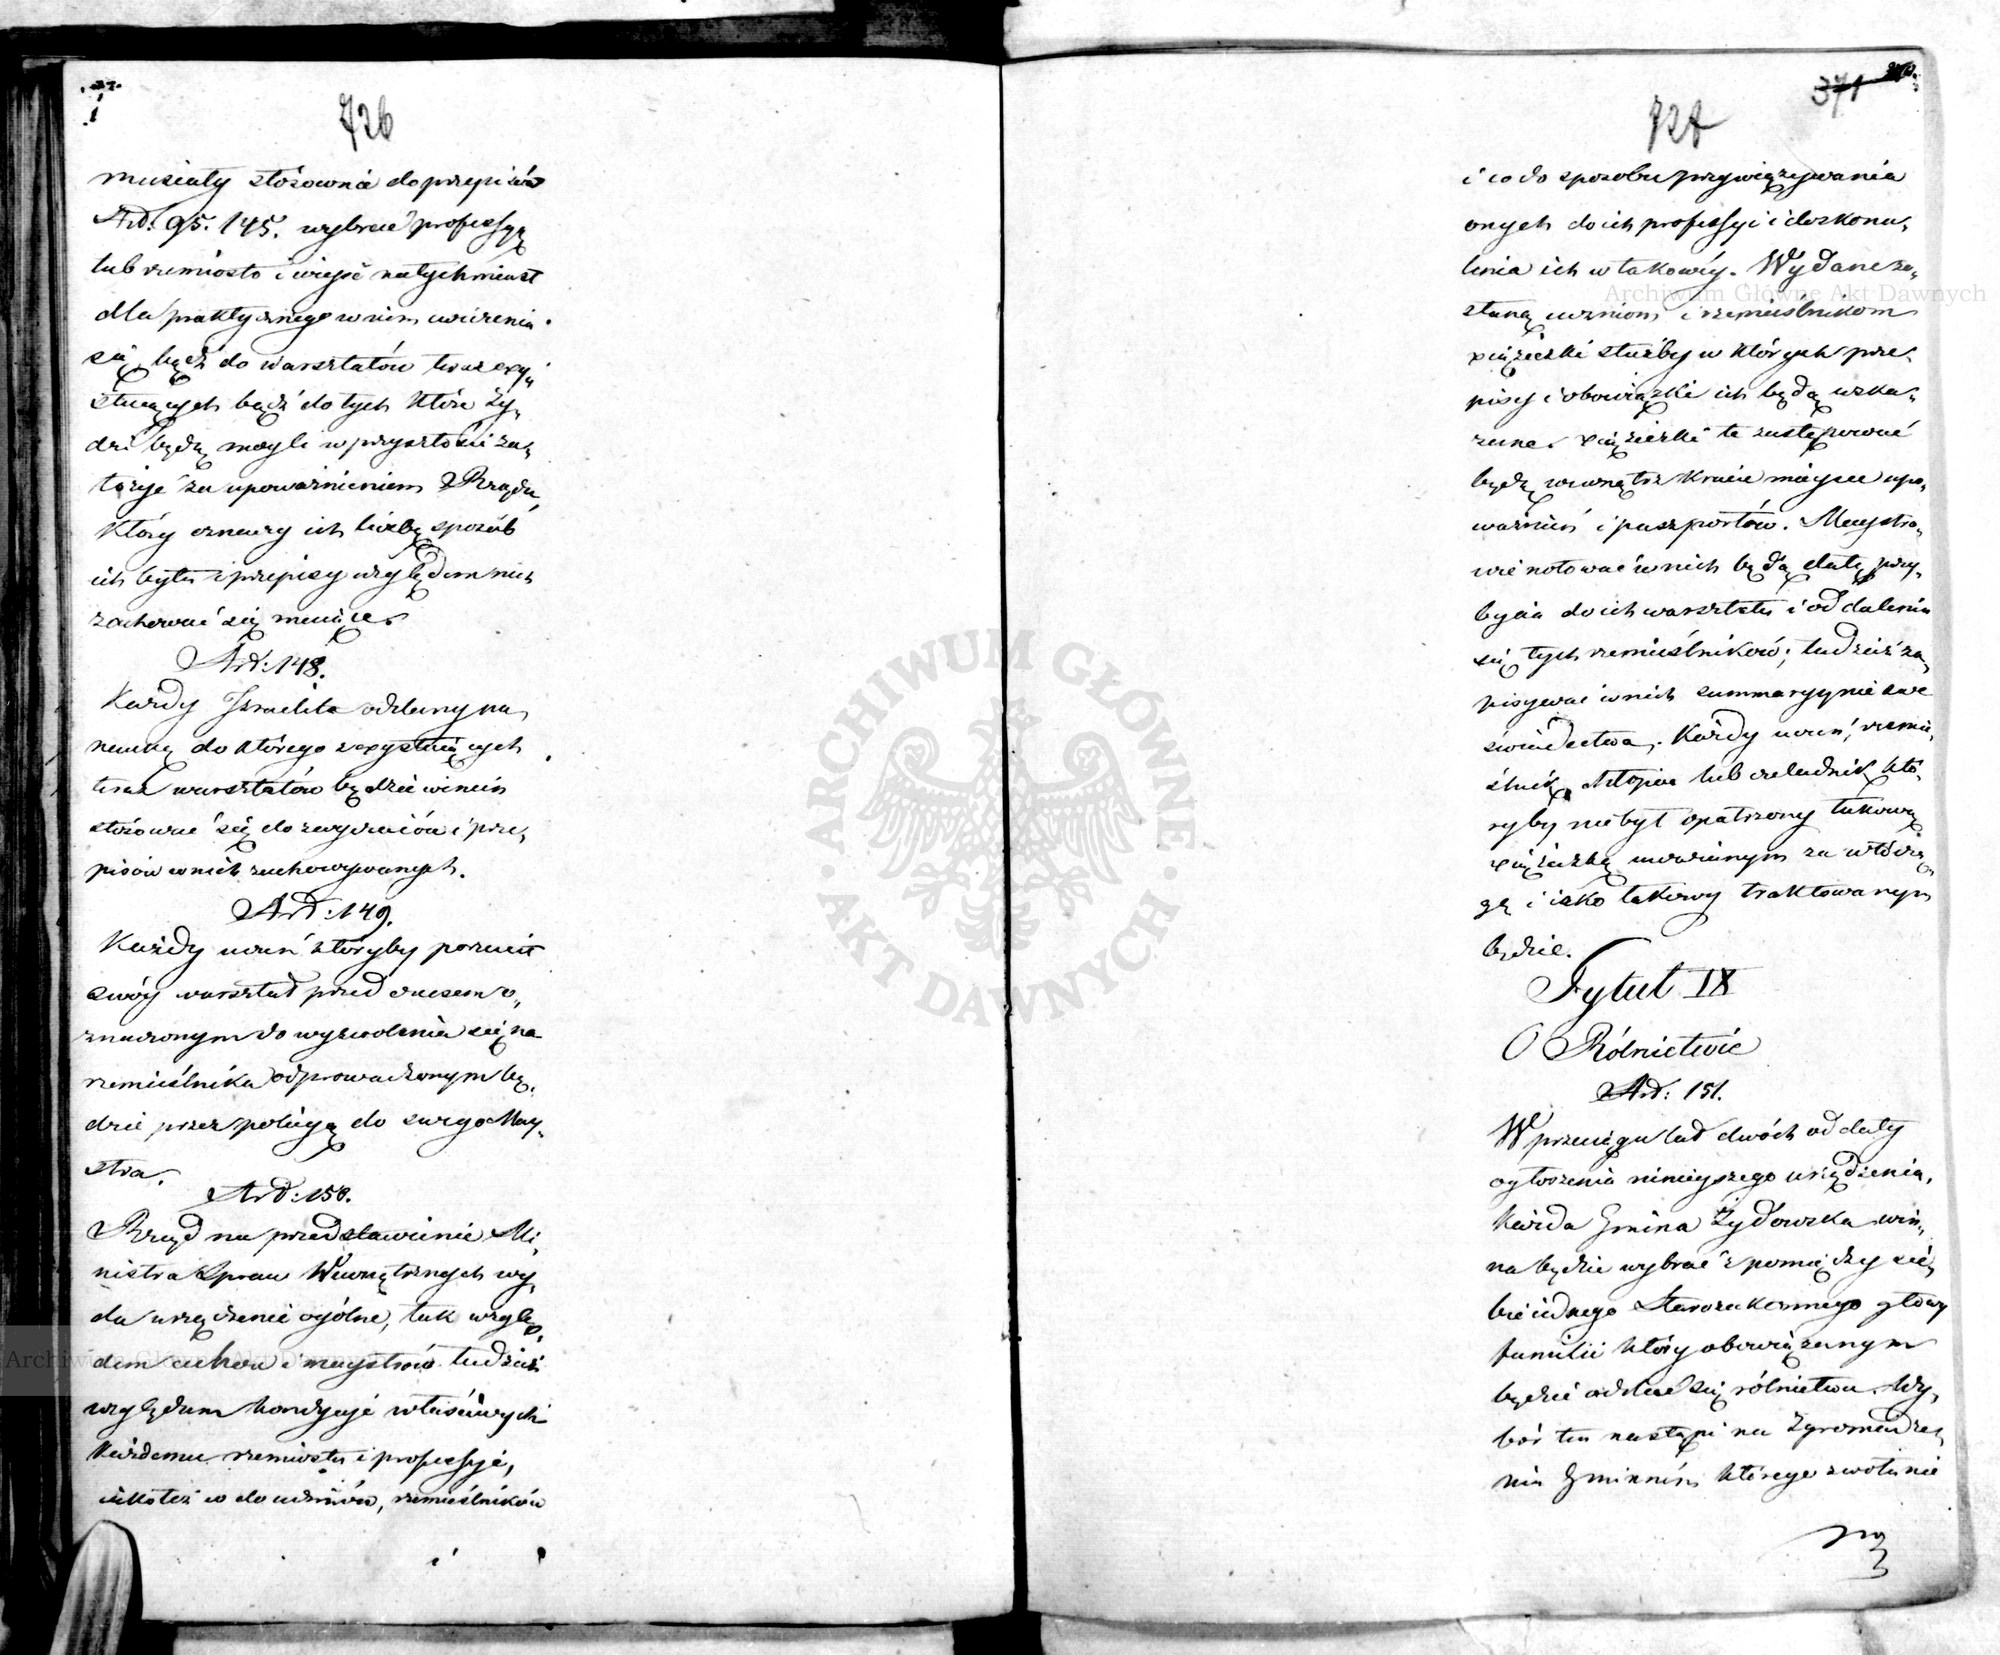 726
musiały stósownie do przepisów
Art: 95. 145. wybrać professyą
lub rzemiosło i wejść natychmiast
dla praktycznego w nim ćwiczenia
się, bądź do warsztatów teraz exy,
stuiących bądź do tych które Ży,
dzi będą mogli w przyszłości za,
łożyć za upoważnieniem Rządu,
który oznaczy ich liczbę sposób
ich bytu i przepisy względem nich
zachować się maiące.
Art: 148.
Każdy Izraelita oddany na
naukę do którego z exystuiących
teraz warsztatów będzie winien
stósować się do zwyczaiów i prze,
pisów w nich zachowywanych.
Art: 149.
Każdy uczeń któryby porzucił
swóy warsztat przed czasem o,
znaczonym do wyzwolenia się na
rzemieślnika odprowadzonym bę,
dzie przez policyą do swego May,
stra.
Art: 150.
Rząd na przedstawienie Mi,
nistra Spraw Wewnętrznych wy,
da urządzenie ogólne, tak wzglę,
dem cechów i maystrów tudzież
względem kondycyi właściwych
każdemu rzemiosłu i professyi,
iako też co do uczniów, rzemieślników
i
371
727
i co do sposobu przywiązywania
onych do ich professyi i doskona,
lenia ich w takowéy. Wydane zo,
staną uczniom i rzemieślnikom
xiążeczki służby w których prze,
pisy i obowiązki ich będą wska,
zane. Xiążeczki te zastępować
będą wewnątrz Kraiu mieysce upo,
ważnień i paszportów. Maystro,
wie notować w nich będą datę przy,
bycia do ich warsztatu i oddalenia
się tych rzemieślników; tudzież za,
pisywać w nich summaryynie swe
świadectwa. Każdy uczeń, rzemie,
ślnik, chłopiec lub czeladnik któ,
ryby nie był opatrzony takową
xiążeczką uważanym za włóczę,
gę i iako takowy traktowanym
będzie.
Tytuł IX
O Rólnictwie
Art: 151.
W przeciągu lat dwóch od daty
ogłoszenia ninieyszego urządzenia,
każda Gmina Żydowska win,
na będzie wybrać z pomiędzy sie,
bie iednego Starozakonnego głowę
familii który obowiązanym
będzie oddać się rólnictwu. Wy,
bór ten nastąpi na Zgromadze,
niu Gminném którego zwołanie